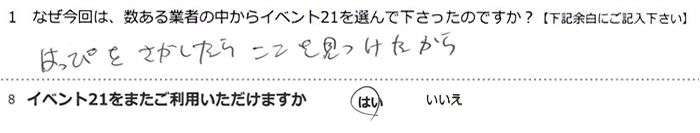 1 なぜ今回は、数ある業者の中からイベント21を選んで下さったのですか？【下記余白にご記入下さい】
はっぴをさがしたらここを見つけたから
8 イベント21をまたご利用いただけますか はい いいえ